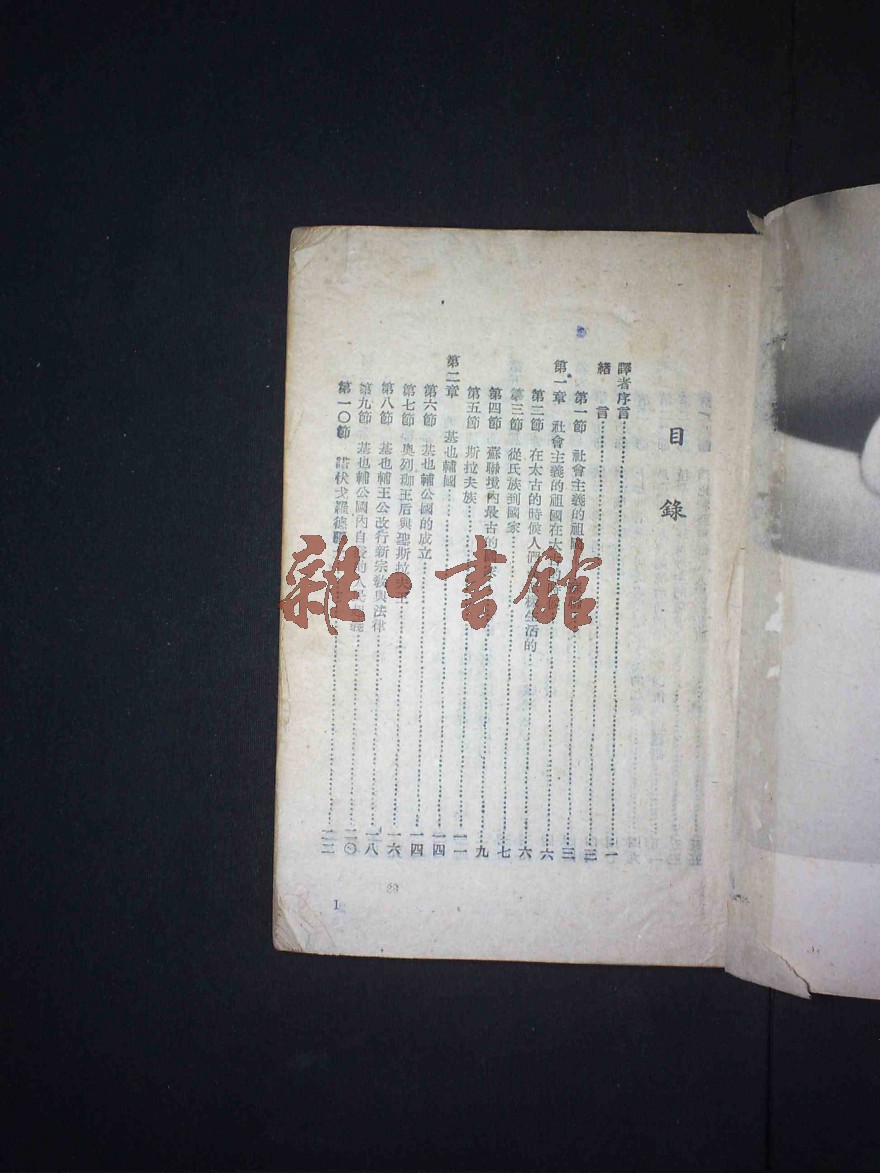 目錄
譯者序言 一
緒言 三
第一章 社會主義的祖國在太 三
第一節 社會主義的祖國 六
第二節 在太古的時候人們 樣生活的 六
第三節 從氏族到國家 七
第四節 蘇聯境內最古的國家
第五節 斯拉夫族 九
第二章 基也輔國 一一
第六節 基也輔公國的成立 一四
第七節 奧列珈王后與聖斯拉夫王 一四
第八節 基也輔王公改行新宗教與法律 一六
第九節 基也輔公國內自 的人民 一八
第一〇節 諾伏戈羅德 二〇
二二
1
雜·書館